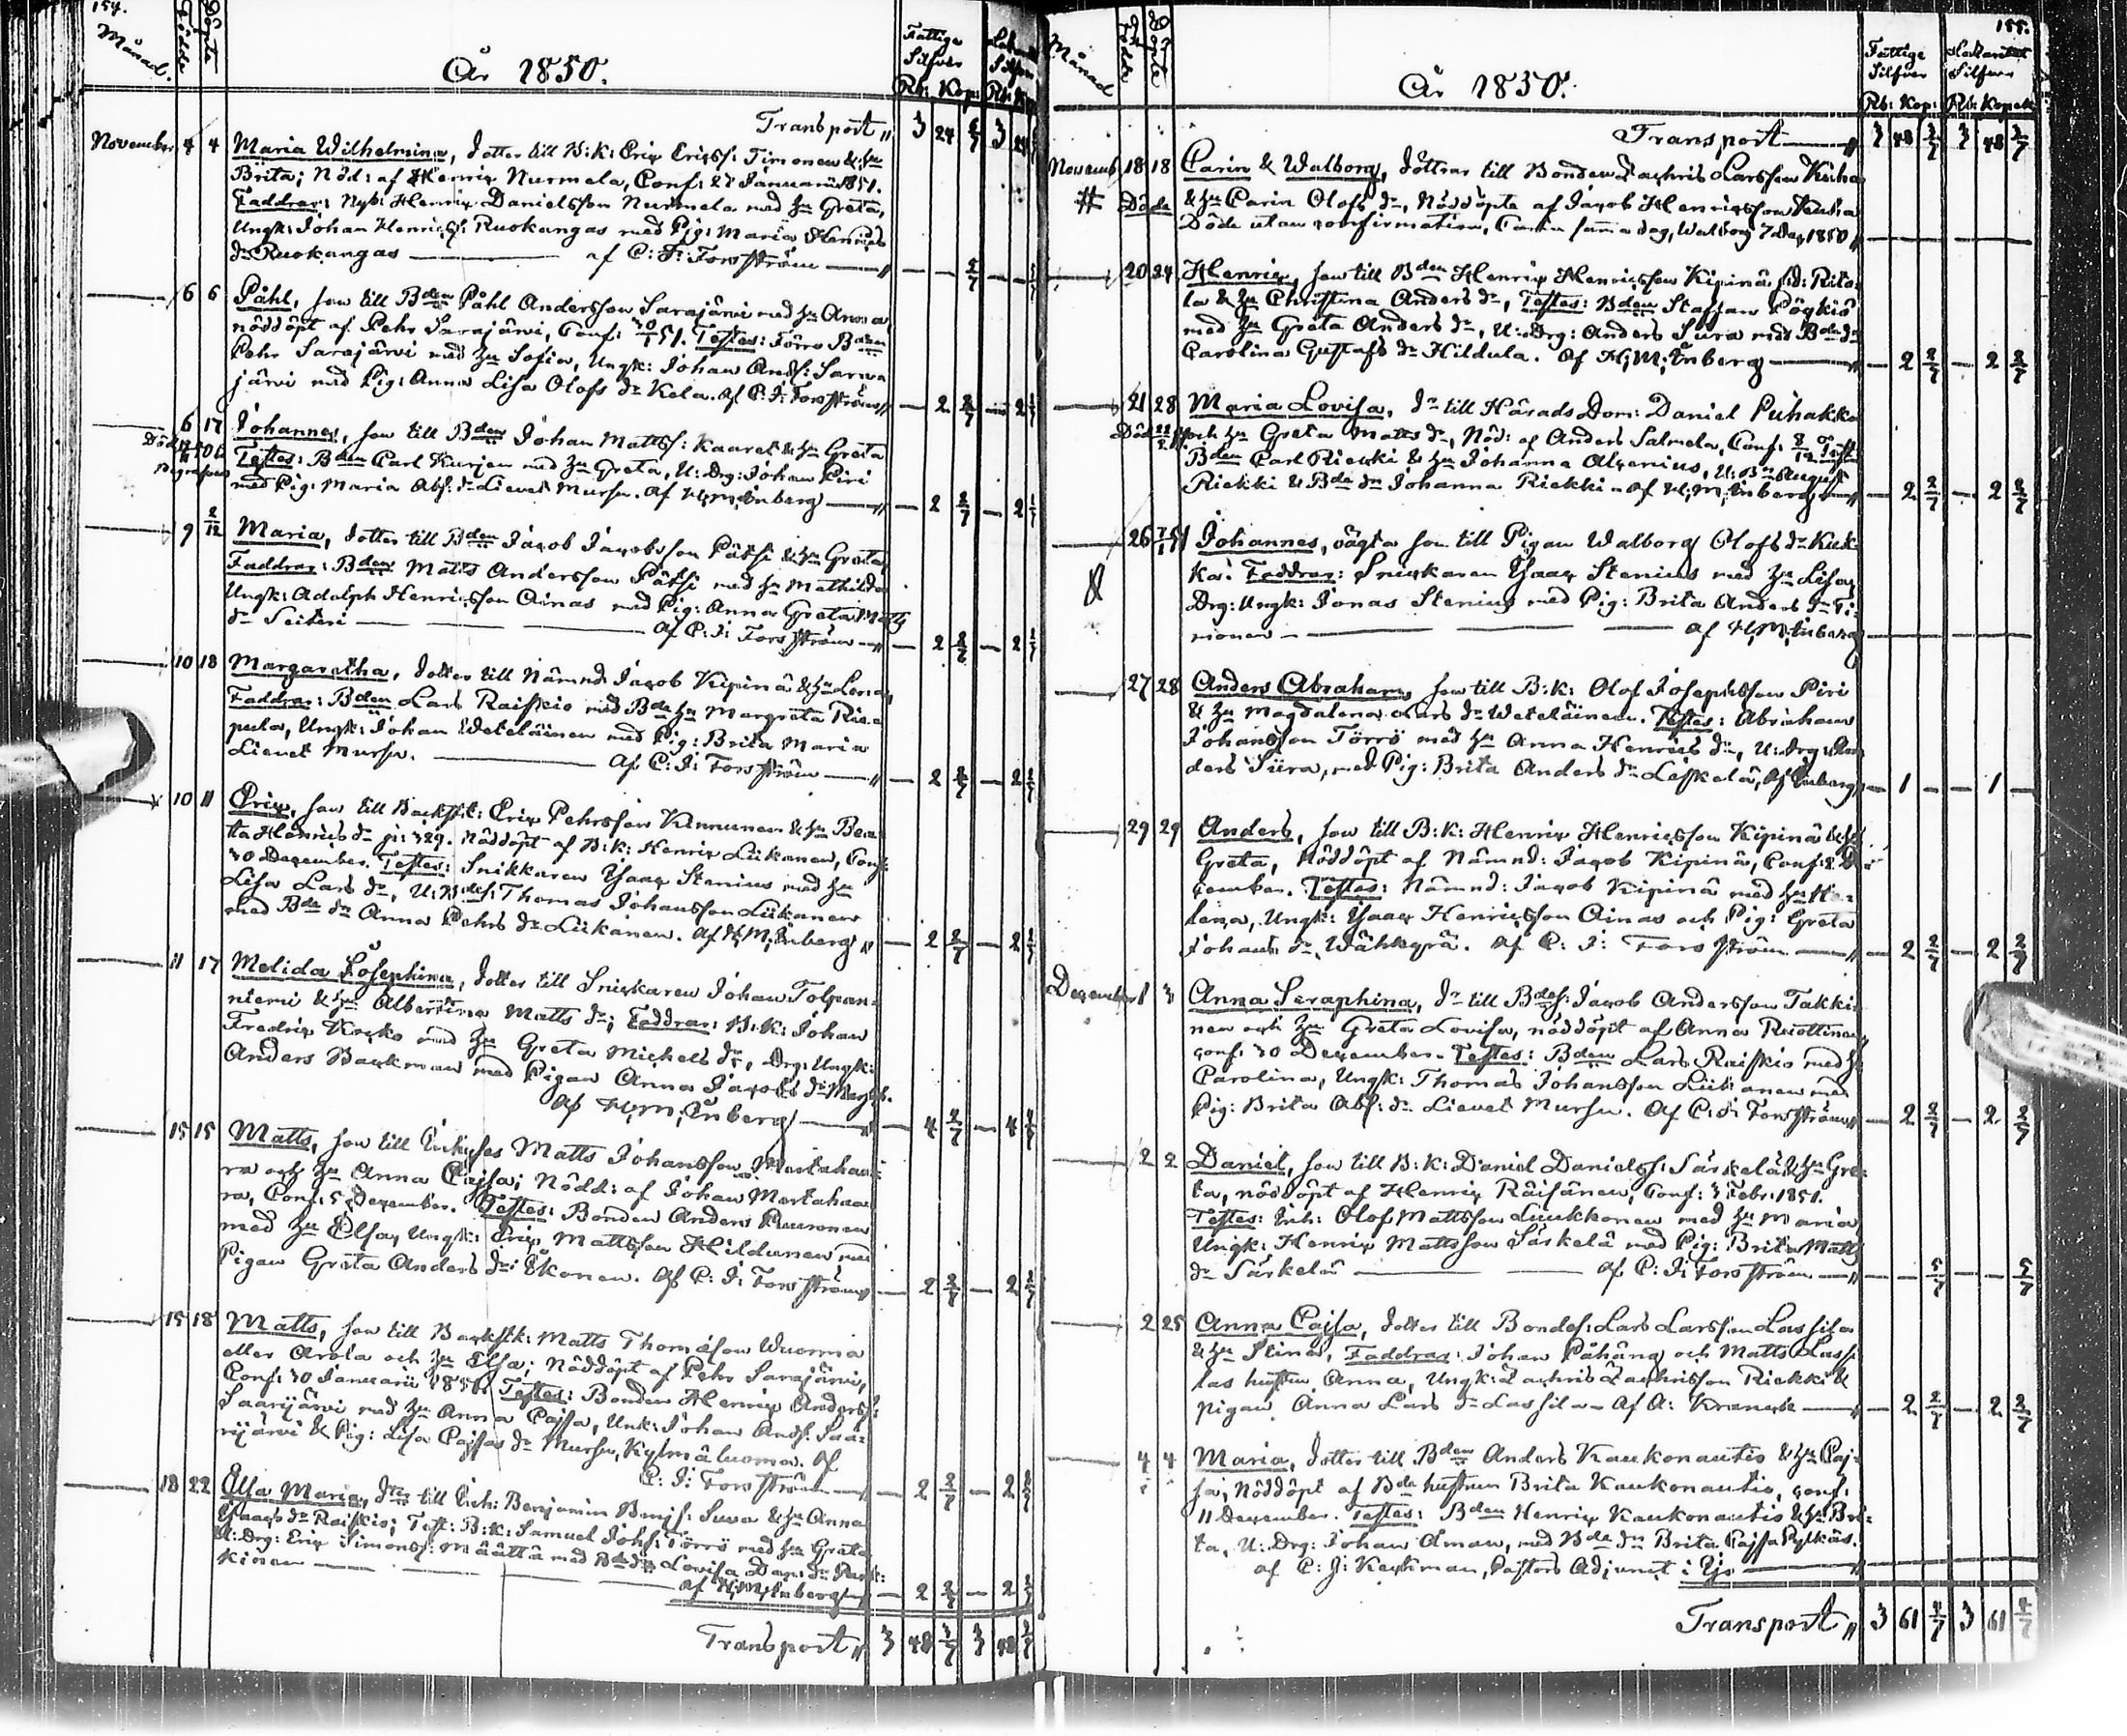 154.
Månad.
Födde
Döpte
År 1850.
Fattige
Silfver
Rb: Kop:
Transport " 3 24 3
November 4 4 Maria Wilhelmina, dotter till B: K: Erix Erixss: Timonen & hu
Brita; Nöd: af Henrix Nurmela, Conf: 28 Januarii 1851.
Faddrar: Nyb: Henrix Danielsson Nurmela med hu Greta,
Ungk: Johan Henricss: Ruokangas med Pig: Maria Henrics
dr Ruokangas — af C: J: Forsström — " — — 5/7
6 6 Påhl, son till Bden Påhl Andersson Sarajärvi med hu Anna
nöddöpt af Pehr Sarajärvi, Conf: 30/1 51. Testes: Förre Bden
Pehr Sarajärvi med hu Sofia, Ungk: Johan Ands: Sarva
järvi med Pig: Anna Lisa Olofs dr Kela. af C: J: Forsström " — 2 2/7 — 2
6 17 Johannes, son till Bden Johan Matts: Kaaret & hu Greta
Testes: Bden Carl Kurjen med hu Greta, U: Drg: Johan Piri
med Pig: Maria Abs: dr Lievet Mursu. Af H: M: Enberg — " — 2 2/7 — 2
9 2/12 Maria, dotter till Bden Jacob Jacobsson Pätsi & hu Greta
Faddrar: Bden Matts Andersson Pätsi med hu Mathilda
Ungk: Adolph Henricsson Ainas med Pig: Anna Greta Matts
dr Seiteri — af C: J: Forsström — " — 2 2/7 — 2
10 18 Margaretha, dotter till Nämnd: Jacob Kipinä & hu Lena,
Faddrar: Bden Lars Raiskio med Bde hu Margreta Rie-
pula, Ungk: Johan Weteläinen med Pig: Brita Maria
Lievet Mursu. — Af C: J: Forsström — " — 2 2/7 — 2
10 11 Erix, son till Backstk: Erix Pehrsson Kinnunen & hu Bea
ta Henrics dr pi: 329. Nöddöpt af B: K: Henrix Liikanen, Conf:
30 December. Testes: Snikkaren Isaac Stenius med hu
Lisa Lars dr, U: Bdes: Thomas Johansson Liikanen
med Bde dr Anna Pehrs dr Liikanen. af H: M: Enberg " — 2 2/7 — 2
11 17 Melida Josephina, dotter till Snickaren Johan Tolpan-
niemi & hu Albertina Matts dr; Faddrar: B: K: Johan
Fredrix Krcko med hu Greta Michels dr, Drg: Ungk:
Anders Backman med Pigan Anna Jacobs dr
af H: M: Enberg — " — 4 2/7 — 4
15 15 Matts, son till Inhyses Matts Johansson Mustahaa-
ra och hu Anna Cajsa; Nödd: af Johan Mustahaa
ra, Conf: 5 December. Testes: Bonden Anders Puuronen
med hu Elsa, Ungk: Erix Mattsson Hildunen med
Pigan Greta Anders dr Ekonen. Af C: J: Forsström " — 2 2/7 — 2
15 18 Matts, son till Backstk: Matts Thomasson Wuorma
eller Arola och hu Elsa; Nöddöpt af Pehr Sarajärvi,
Conf: 30 Januarii 1851. Testes: Bonden Henrix Anderss:
Saarijärvi med hu Anna Cajsa, Unk: Johan Ands: Saa-
rijärvi & Pig: Lisa Cajsas dr Mursu, Kylmäluoma. Af
C: J: Forsström — " — 2 2/7 — 2
18 22 Elsa Maria, dtr till Inh: Benjamin Benjs: Suva & hu Anna
Isaacs dr Raiskio; Test: B: K: Samuel Johs: Törrö med hu Greta
U: Drg: Eric Simonss: Määttä med Bde dr Lovisa Dan: dr Park-
kinen — af H: M: Enberg " — 2 2/7 — 2
Transport " 3 48 3/7 3 48 3/7
155.
Månad
Födde
Döpte
År 1850.
Fattige
Silfver
Rb: Kop: Rb: Kopek
Transport — " 3 48 3/7 3 48 3/7
Novemb 18 18 Carin & Walborg, döttrar till Bonden Zachris Larsson Kuha
# Döde & hu Carin Olofs dr, Nöddöpte af Jacob Henricsson Kuha
Döde utan confirmation, Carin samma dag, Walborg 7 Dec 1850 "
20 24 Henrix, son till Bden Henrix Henricsson Kipinä Rito-
la & hu Christina Anders dr, Testes: Bden Staffan Pöykiö
med hu Greta Anders dr, U: Drg: Anders Sura med Bde dr
Carolina Gustafs dr Hildula. Af H: M: Enberg — " — 2 2/7 — 2 2/7
21 28 Maria Lovisa, dr till Härads Dom: Daniel Puhakka
och hu Greta Matts dr, Nöd: af Anders Salmela, Conf: 8/12 Test:
Bden Carl Riekki & hu Johanna Alcenius, U: Bn August
Riekki & Bde dr Johanna Riekki. af H: M: Enberg — " — 2 2/7 — 2 2/7
26 Johannes, oägta son till Pigan Walborg Olofs dr Kuk-
ka. Faddrar: Snickaren Isaac Stenius med hu Lisa,
Drg: Ungk: Jonas Stenius med Pig: Brita Anders dr Ti-
monen — af H: M: Enberg
27 28 Anders Abraham, son till B: K: Olof Josephsson Piri
& hu Magdalena Lars dr Weteläinen. Testes: Abraham
Johansson Törrö med hu Anna Henrics dr, U: Drg: An-
ders Siira, med Pig: Brita Anders dr Leskelä, Af Enberg " — 1 — — 1 —
29 29 Anders, son till B: K: Henrix Henricsson Kipinä & hu
Greta, Nöddöpt af Nämnd: Jacob Kipinä, Conf: 2 De-
cember. Testes: Nämnd: Jacob Kipinä med hu He-
lena, Ungk: Isaac Henricsson Ainas och Pig: Greta
Johans dr Wähkyrä. Af C: J: Forsström — " — 2 2/7 — 2 2/7
December 1 3 Anna Seraphina, dr till Bdes: Jacob Andersson Takki-
nen och hu Greta Lovisa, nöddöpt af Anna Ruottinen,
conf: 30 December. Testes: Bden Lars Raiskio med hu
Carolina, Ungk: Thomas Johansson Liikanen med
Pig: Brita Abs: dr Lievet Mursu. Af C: J: Forsström " — 2 2/7 — 2 2/7
2 2 Daniel, son till B: K: Daniel Danielss: Särkelä & hu Gre-
ta, nöddöpt af Henrix Räisänen, Conf: 3 Febr: 1851.
Testes: Inh: Olof Mattsson Luukkonen med hu Maria
Ungk: Henrix Mattsson Särkelä med Pig: Brita Matts
dr Särkelä — af C: J: Forsström — " — — 5/7 — — 5/7
2 25 Anna Cajsa, dotter till Bondes: Lars Larsson Lassila
& hu Stina, Faddrar: Johan Påhäng och Matts Lassi-
las hustru Anna, Ungk: Zachris Zachrisson Riekki &
pigan Anna Lars dr Lassila — Af A: Kranck — " — 2 2/7 — 2 2/7
4 4 Maria, dotter till Bden Anders Kaukonautio & hu Caj-
sa; Nöddöpt af Bde hustrun Brita Kaukonautio, conf:
11 December. Testes: Bden Henrix Kaukonautio & hu Bri-
ta, U: Drg: Johan Oman, med Bde dr Brita Cajsa Pylkäs.
af C: J: Keckman, Pastors Adjunct i Ijo — "
Transport " 3 61 4/7 3 61 4/7